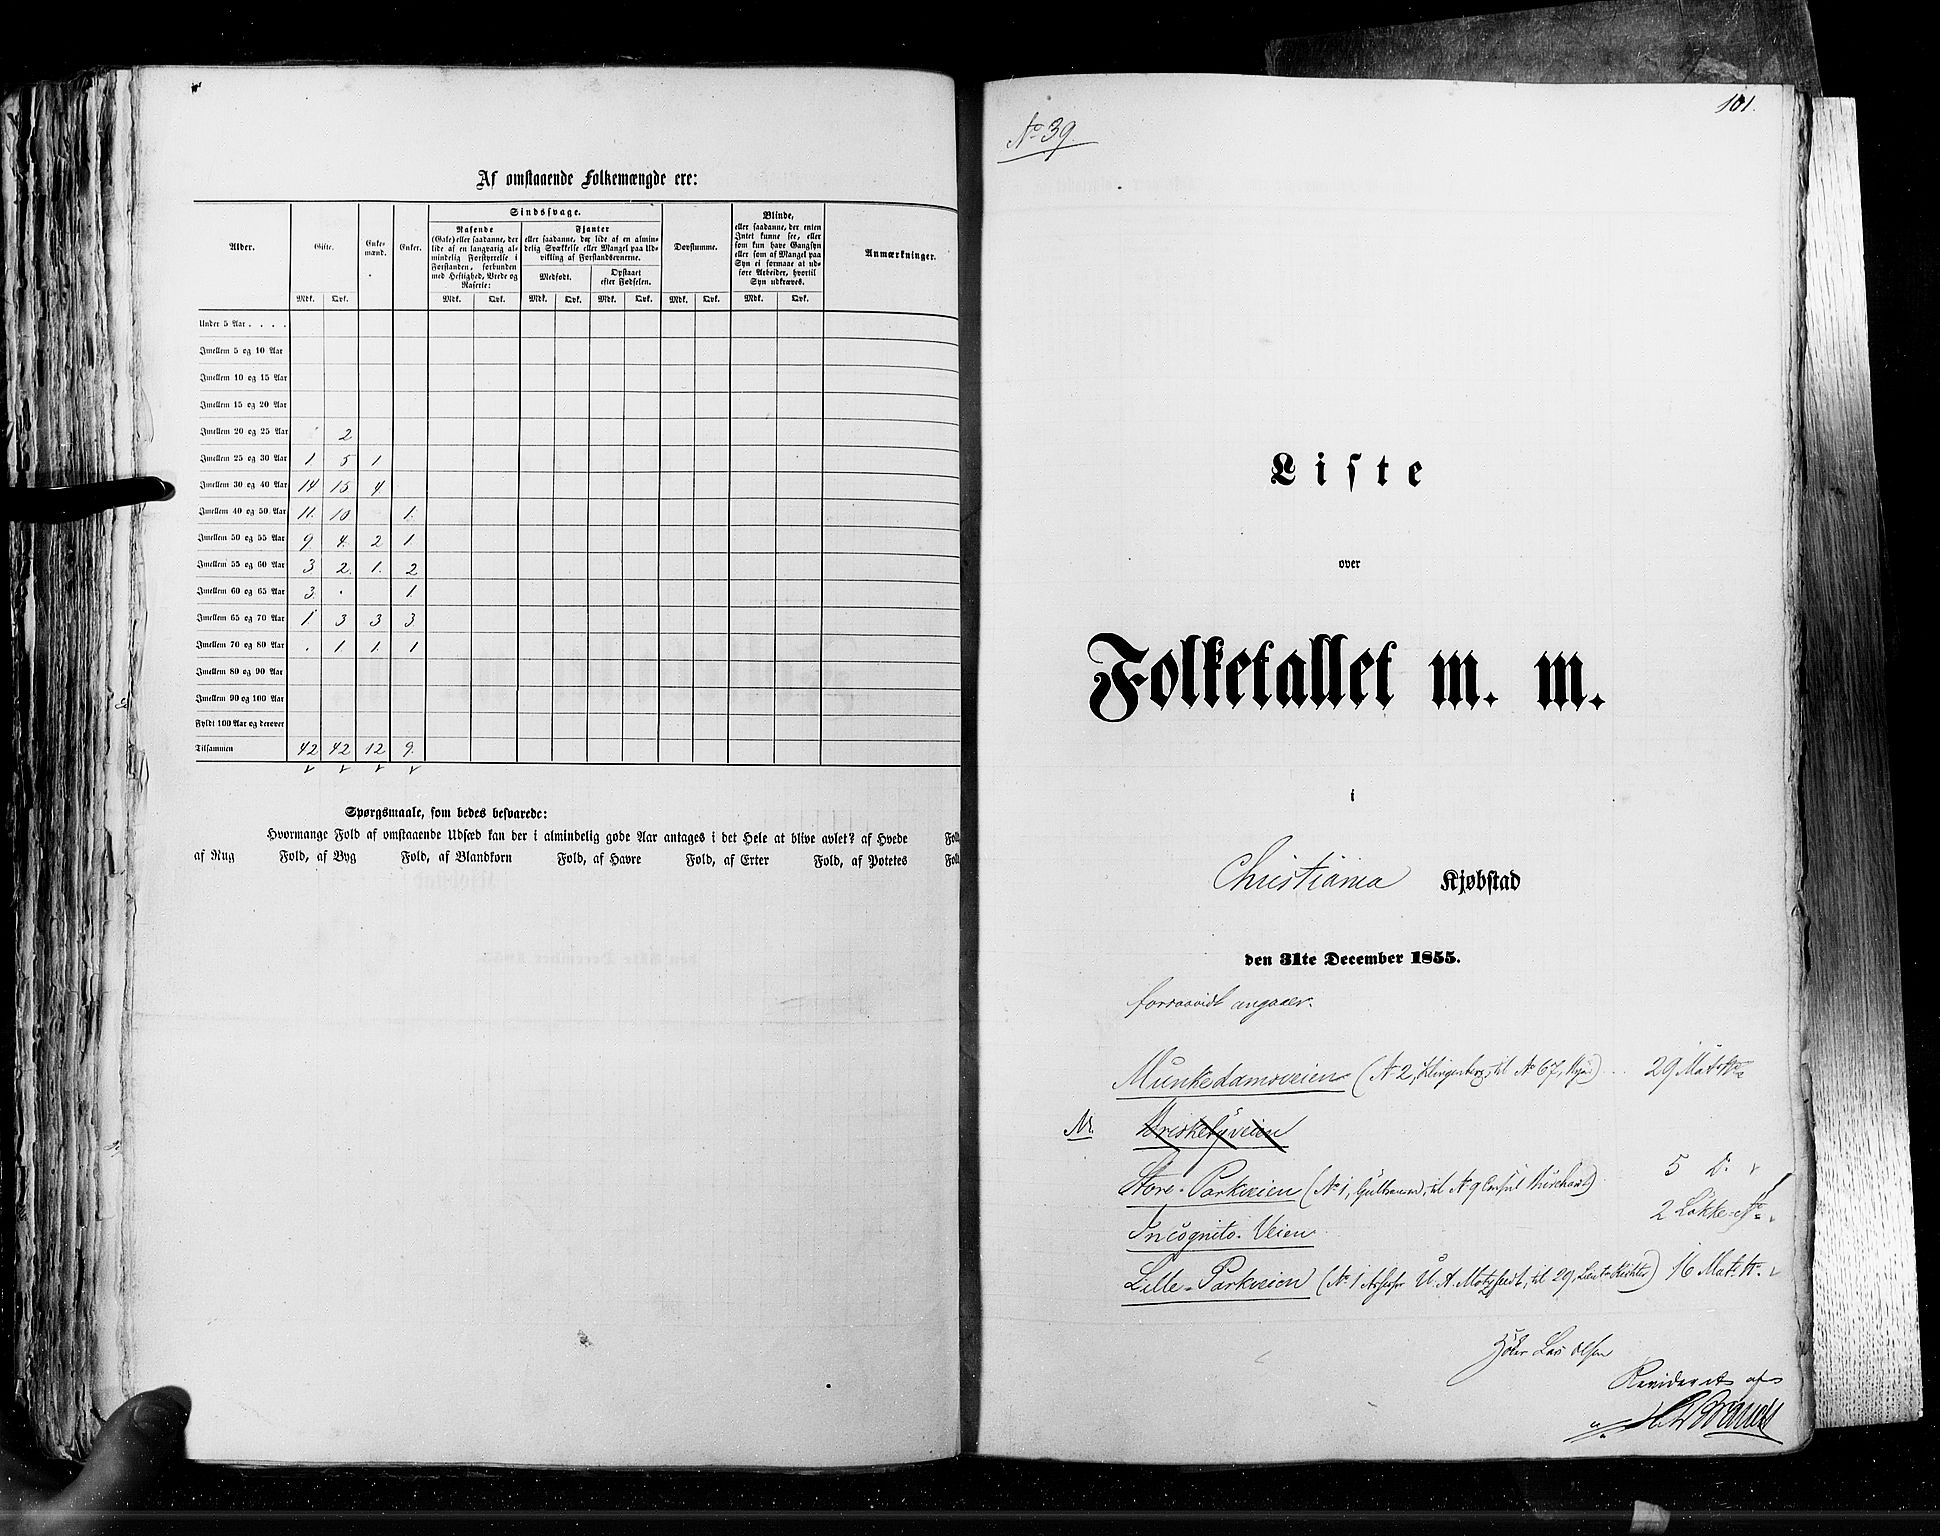 Af omstaaende Folkemængde ere:
Alder. Gifte. Enkemænd. Enker. Sindssvage. Døvstumme. Blinde, eller saadanne, der enten Intet kunne see, eller som kun have Gangsyn eller som af Mangel paa Syn ei formaae at udføre Arbeider, hvortil Syn udkræves. Anmærkninger.
Rasende (Gale) eller saadanne, der lide af en langvarig almindelig Forstyrrelse i Forstanden, forbunden med Heftighed, Vrede og Raserie:
Fjanter eller saadanne, der lide af en almindelig Svækkelse eller Mangel paa Udvikling af Forstandsevnerne.
Medfødt. Opstaaet efter Fødselen.
Mdk. Qvk. Mdk. Qvk. Mdk. Qvk. Mdk. Qvk. Mdk. Qvk. Mdk. Qvk.
Under 5 Aar . . . .
Imellem 5 og 10 Aar
Imellem 10 og 15 Aar
Imellem 15 og 20 Aar
Imellem 20 og 25 Aar 2
Imellem 25 og 30 Aar 1. 5 1
Imellem 30 og 40 Aar 14 15 4.
Imellem 40 og 50 Aar 11. 10 1.
Imellem 50 og 55 Aar 9. 4. 2 1
Imellem 55 og 60 Aar 3 2. 1. 2
Imellem 60 og 65 Aar 3. . 1.
Imellem 65 og 70 Aar 1. 3 3 3
Imellem 70 og 80 Aar . 1 1. 1
Imellem 80 og 90 Aar
Imellem 90 og 100 Aar
Fyldt 100 Aar og derover
Tilsammen 42 42 12 9.
Spørgsmaale, som bedes besvarede:
Hvormange Fold af omstaaende Udsæd kan der i almindelig gode Aar antages i det Hele at blive avlet? af Hvede Fold,
af Rug Fold, af Byg Fold, af Blandkorn Fold, af Havre Fold, af Erter Fold, af Potetes Fold
101.
No 39.
Liste
over
Folketallet m. m.
i
Christiania Kjøbstad
den 31te December 1855.
forsaavidt angaaer.
Munkedamsveien (No 2, Klingenberg, til No 67, ) 29 Mat. No
Briskebyveien
Store-Parkveien (No 1, til No 9 Consul ) 5 D.
Incognito-Veien 2 Løkke-No
Lille-Parkveien (No 1 Assessor U. A. Motzfeldt, til 29, Lieut. Richter) 16 Mat. No.
Lars Olsen
Revideret af